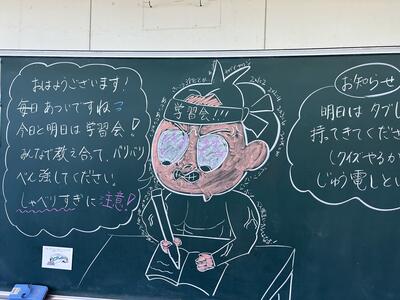 おはようございます!
毎日 あついですね
今日と明日は学習会!
みんなで教え合って、バリバリ
べん強してください
しゃべりすぎに注意!
学習会!!!
お知らせ
明日は タブレ
持ってきてくださ
(クイズやるか
じゅう電しと